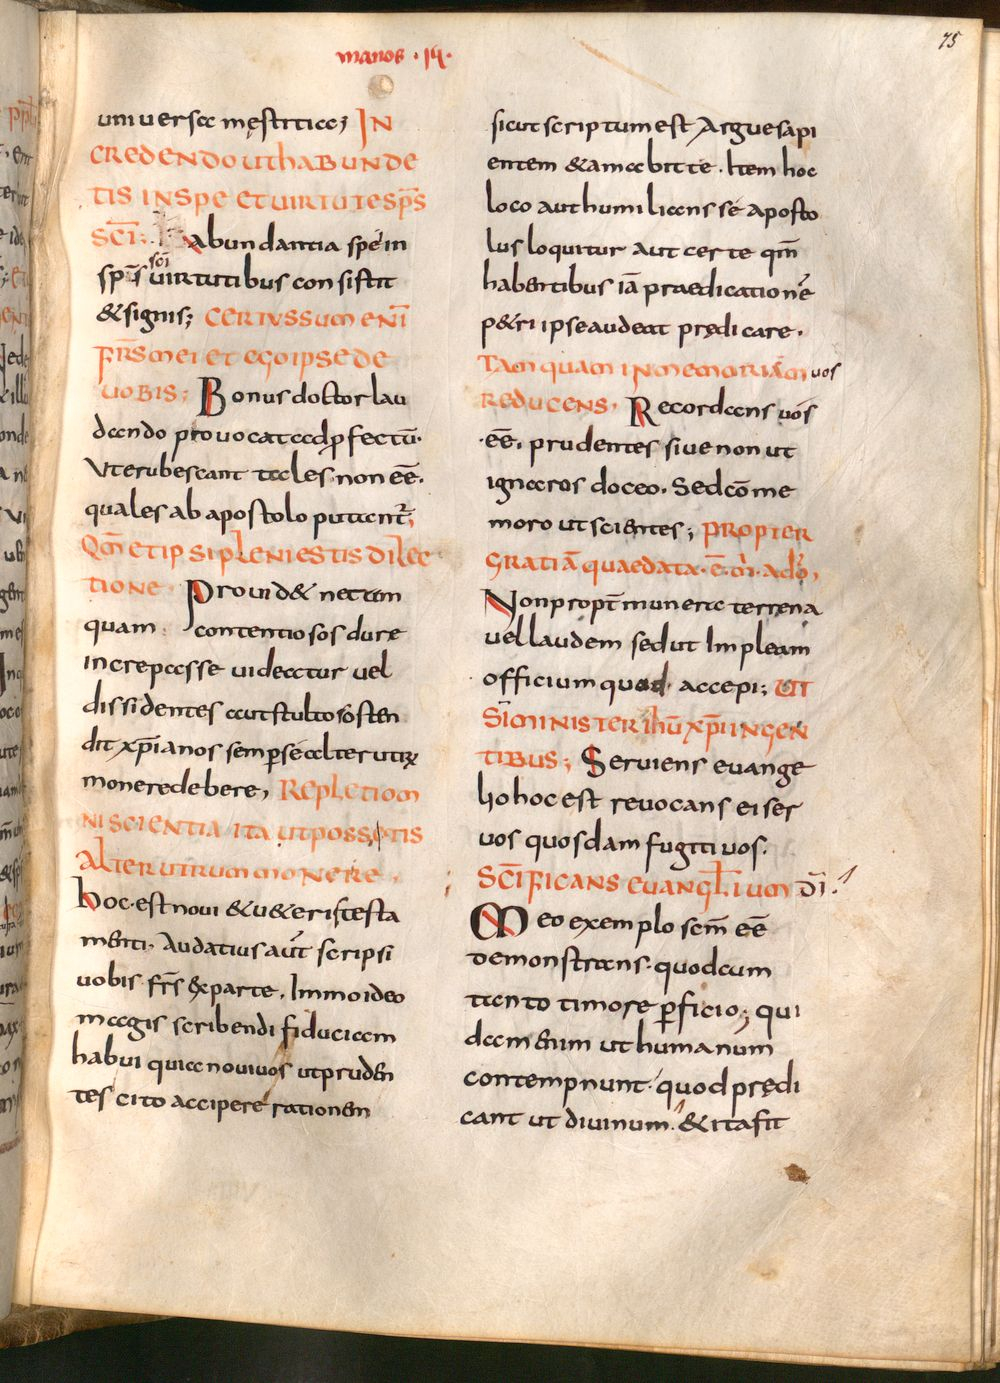 manos · iii ·
75
universa męstitia; IN
CREDENDO UT HABUNDE
TIS IN SPE ET UIRTUTE SPS
SCI; abundantia spei in
sps sci uirtutibus consistit
& signis; CERTUS SUM ENI
FRS MEI ET EGO IPSE DE
UOBIS; Bonus doctor lau
dando prouocat ad pfectū.
Vt erubescant tales non eē.
quales ab apostolo putantr;
QM ET IPSI PLENI ESTIS DILEC
TIONE Prouid& ne tam
quam contentiosos dure
increpasse uideatur uel
dissidentes aut stultos osten
dit xpianos semp se alterutrū
monere debere, REPLETI OM
NI SCIENTIA ITA UT POSSITIS
ALTERUTRUM MONERE.
hoc est noui & u&eris testa
menti. Audatius aut scripsi
uobis frs ex parte. Immo ideo
magis scribendi fiduciam
habui quia noui uos ut pruden
tes cito accipere rationem
sicut scriptum est Argue sapi
entem & amabit te. Item hoc
loco aut humilians se aposto
lus loquitur aut certe qm
habentibus iā praedicatione
p&ri ipse audeat prędicare.
TAMQUAM IN MEMORIAM uos
REDUCENS, Recordans uos
·eē. prudentes siue non ut
ignaros doceo. Sed cōme
moro ut scientes; PROPTER
GRATIĀ QUAE DATA·Ē·M·A DO,
Non propt munera terrena
uel laudem sed ut Impleam
officium quod accepi; UT
SIM MINISTER IHU XPI IN GEN
TIBUS; Seruiens euange
lio hoc est reuocans ei ser
uos quosdam fugitiuos.
SCIFICANS EUANGLIUM DI
Meo exemplo sem eē
demonstrans. quod cum
tanto timore pficio; qui
dam enim ut humanum
contempnunt. quod prędi
cant ut diuinum. & ita fit